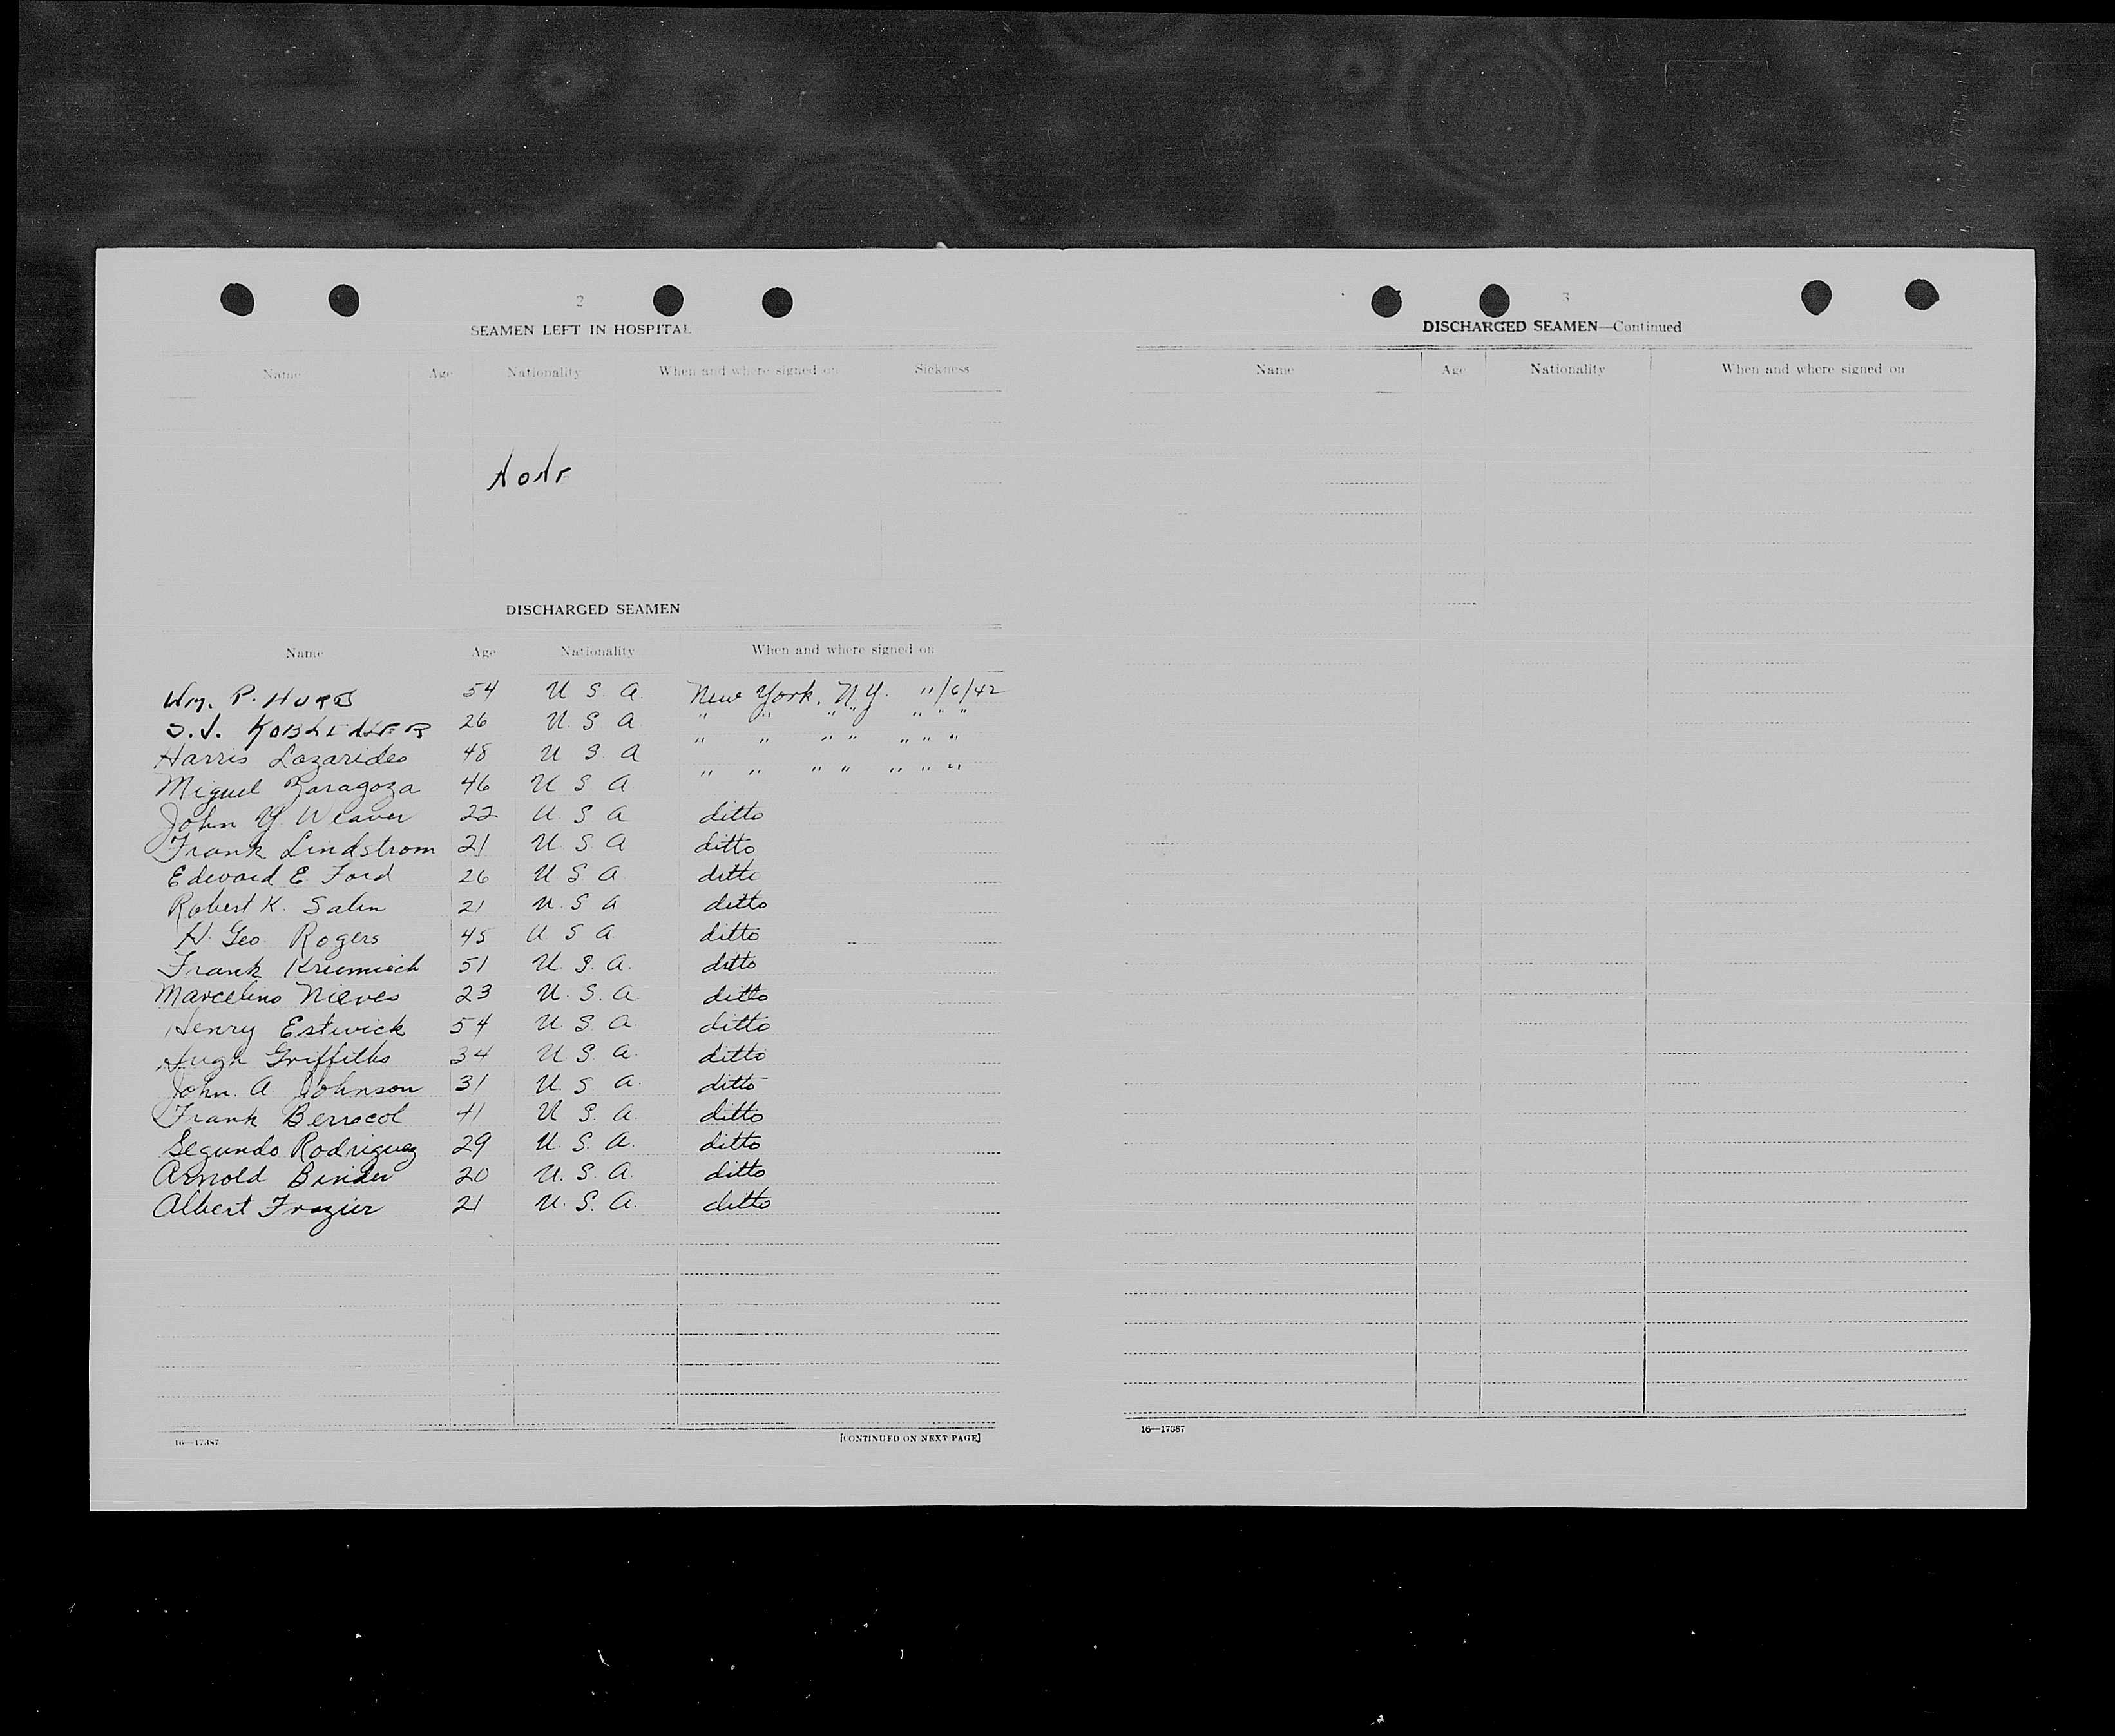 2
SEAMEN LEFT IN HOSPITAL
Name Age Nationality When and where signed on Sickness
NONE
DISCHARGED SEAMEN
Name Age Nationality When and where signed on
Wm. P. 54 U S A. New York, N.Y. 11/6/42
26 U. S A " " " " " " "
Harris Lazarides 48 U S. A " " " " " " "
Miguel Zaragoza 46 U S A " " " " " " "
John Y. Weaver 22 U. S A ditto
Frank Lindstrom 21 U. S A ditto
Edward E Ford 26 U S A ditto
Robert K. Salin 21 U. S A ditto
H. Geo. Rogers 45 U S A ditto
Frank 51 U. S. A. ditto
Marcelino Nieves 23 U. S. A ditto
Henry Estwick 54 U. S. A. ditto
Hugh Griffiths 34 U S. A. ditto
John. A. Johnson 31 U. S. A. ditto
Frank Berrocol 41 U S. A. ditto
Segundo Rodriguez 29 U. S. A. ditto
Arnold Binder 20 U. S. A. ditto
Albert Frazier 21 U. S. A. ditto
16—17387
[CONTINUED ON NEXT PAGE]
3
DISCHARGED SEAMEN—Continued
Name Age Nationality When and where signed on
16—17387